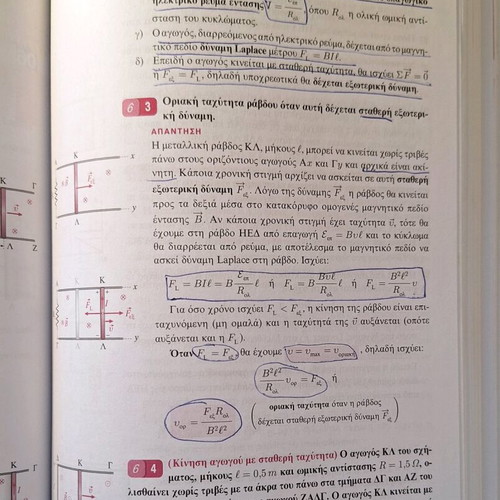 ηλεκτρικό ρεύμα έντασης I = Ɛεπ/Rολ, όπου Rολ η ολική ωμική αντί-
σταση του κυκλώματος.
γ) Ο αγωγός, διαρρεόμενος από ηλεκτρικό ρεύμα, δέχεται από το μαγνη-
τικό πεδίο δύναμη Laplace μέτρου F_L = BIℓ.
δ) Επειδή ο αγωγός κινείται με σταθερή ταχύτητα, θα ισχύει ΣF = 0
ή Fεξ = F_L, δηλαδή υποχρεωτικά θα δέχεται εξωτερική δύναμη.
6 3 Οριακή ταχύτητα ράβδου όταν αυτή δέχεται σταθερή εξωτερι-
κή δύναμη.
ΑΠΑΝΤΗΣΗ
Η μεταλλική ράβδος ΚΛ, μήκους ℓ, μπορεί να κινείται χωρίς τριβές
πάνω στους οριζόντιους αγωγούς Αx και Γy και αρχικά είναι ακί-
νητη. Κάποια χρονική στιγμή αρχίζει να ασκείται σε αυτή σταθερή
εξωτερική δύναμη Fεξ. Λόγω της δύναμης Fεξ η ράβδος θα κινείται
προς τα δεξιά μέσα στο κατακόρυφο ομογενές μαγνητικό πεδίο
έντασης B. Αν κάποια χρονική στιγμή έχει ταχύτητα υ, τότε θα
έχουμε στη ράβδο ΗΕΔ από επαγωγή Ɛεπ = Bυℓ και το κύκλωμα
θα διαρρέεται από ρεύμα, με αποτέλεσμα το μαγνητικό πεδίο να
ασκεί δύναμη Laplace στη ράβδο. Ισχύει:
F_L = BIℓ = B Ɛεπ/Rολ ℓ ή F_L = B Bυℓ/Rολ ℓ ή F_L = B²ℓ²/Rολ υ
Για όσο χρόνο ισχύει F_L < Fεξ, η κίνηση της ράβδου είναι επι-
ταχυνόμενη (μη ομαλά) και η ταχύτητά της υ αυξάνεται (οπότε
αυξάνεται και η F_L).
Όταν F_L = Fεξ θα έχουμε υ = υmax = υοριακή, δηλαδή ισχύει:
B²ℓ²/Rολ υορ = Fεξ ή
υορ = FεξRολ/B²ℓ² (οριακή ταχύτητα όταν η ράβδος
δέχεται σταθερή εξωτερική δύναμη Fεξ)
6 4 (Κίνηση αγωγού με σταθερή ταχύτητα) Ο αγωγός ΚΛ του σχή-
ματος, μήκους ℓ = 0,5 m και ωμικής αντίστασης R = 1,5 Ω, ο-
λισθαίνει χωρίς τριβές με τα άκρα του πάνω στα τμήματα ΔΓ και ΑΖ του